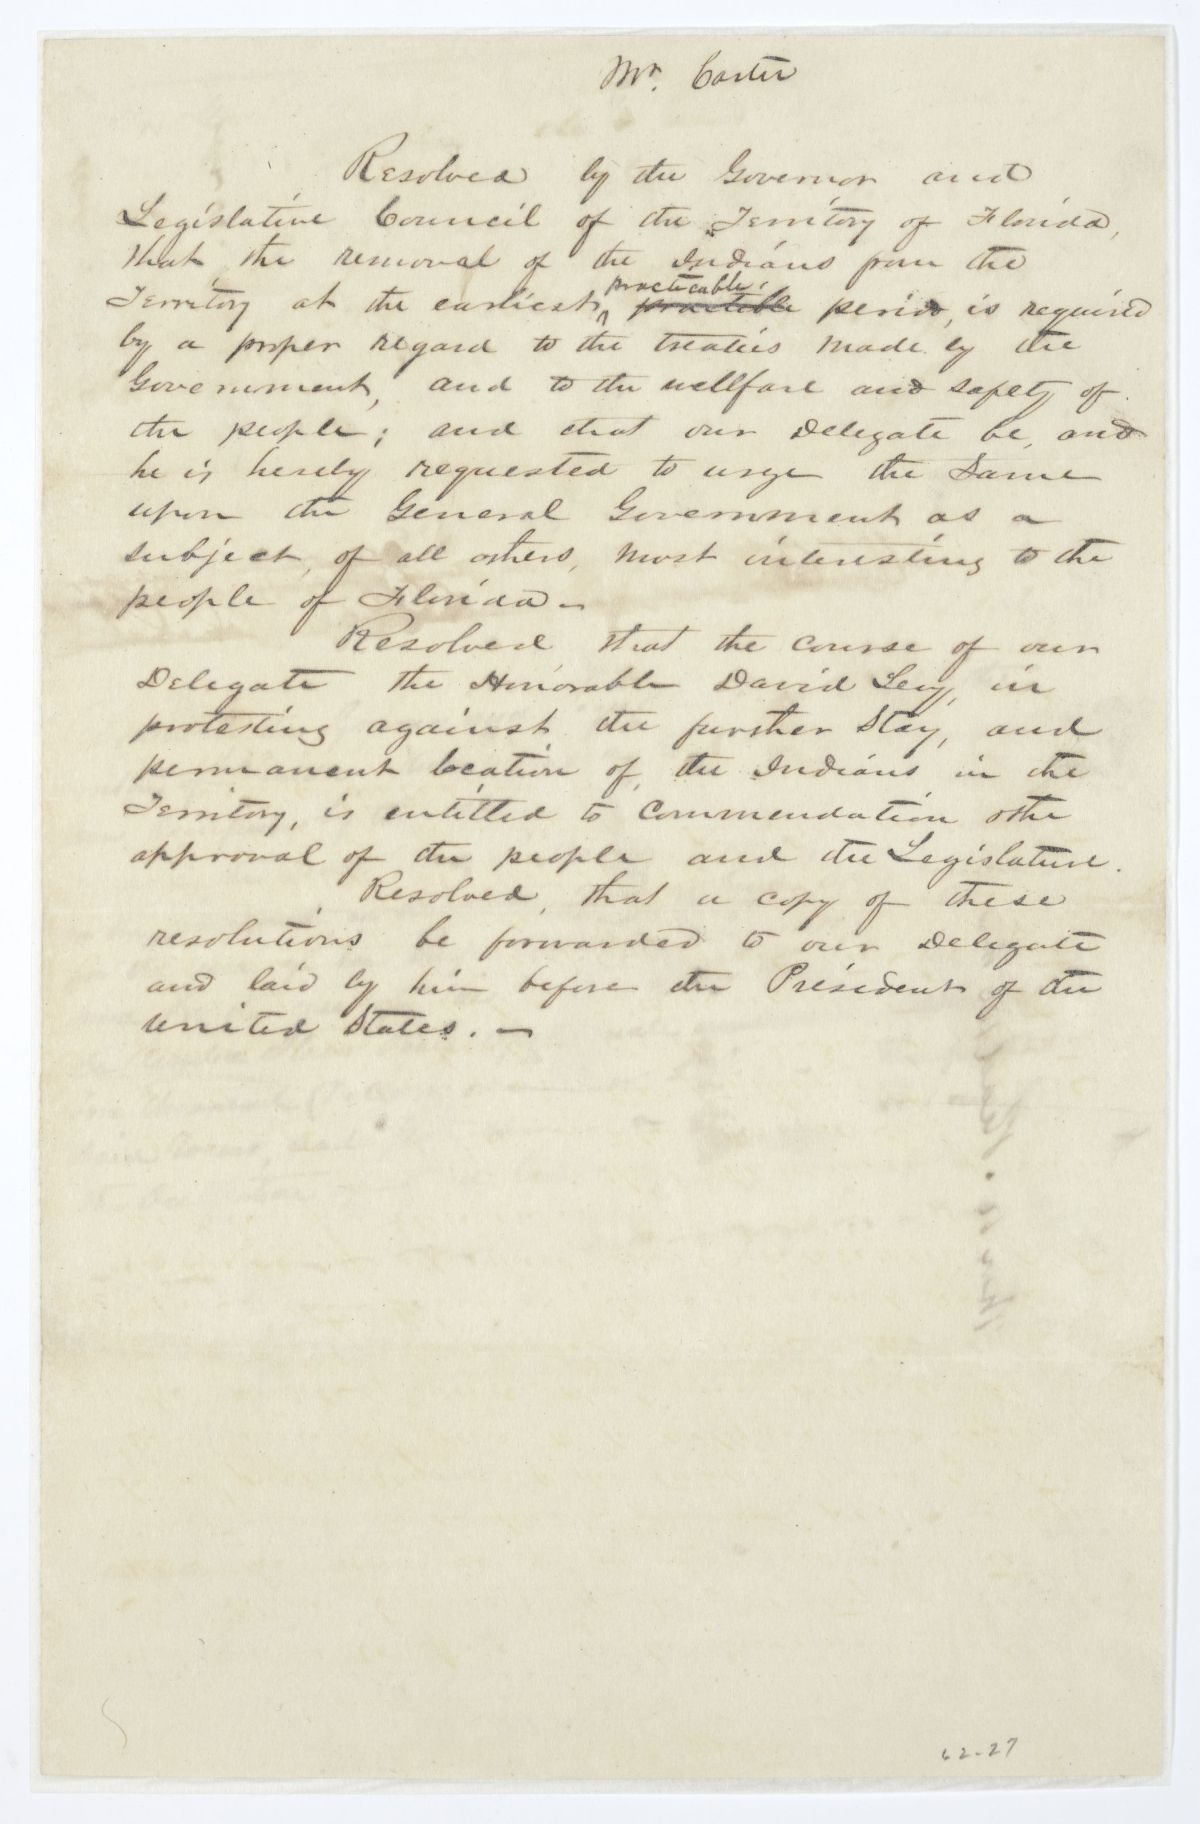 Mr. Carter
Resolved by the Governor and
Legislative Council of the Territory of Florida,
that the removal of the Indians from the
practicable
Territory at the earliest practible period, is required
by a proper regard to the treaties made by the
Government, and to the wellfare and safety of
the people; and that our Delegate be, and
he is hereby requested to urge the Same
upon the General Government as a
subject, of all others, most interesting to the
people of Florida.
Resolved, that the course of our
Delegate the Honorable David Levy, in
protesting against the further Stay, and
permanent location of, the Indians in the
Territory, is entitled to commendation &the
approval of the people and the Legislature.
Resolved, that a copy of these
resolutions be forwarded to our Delegate
and laid by him before the President of the
United States.
62-27